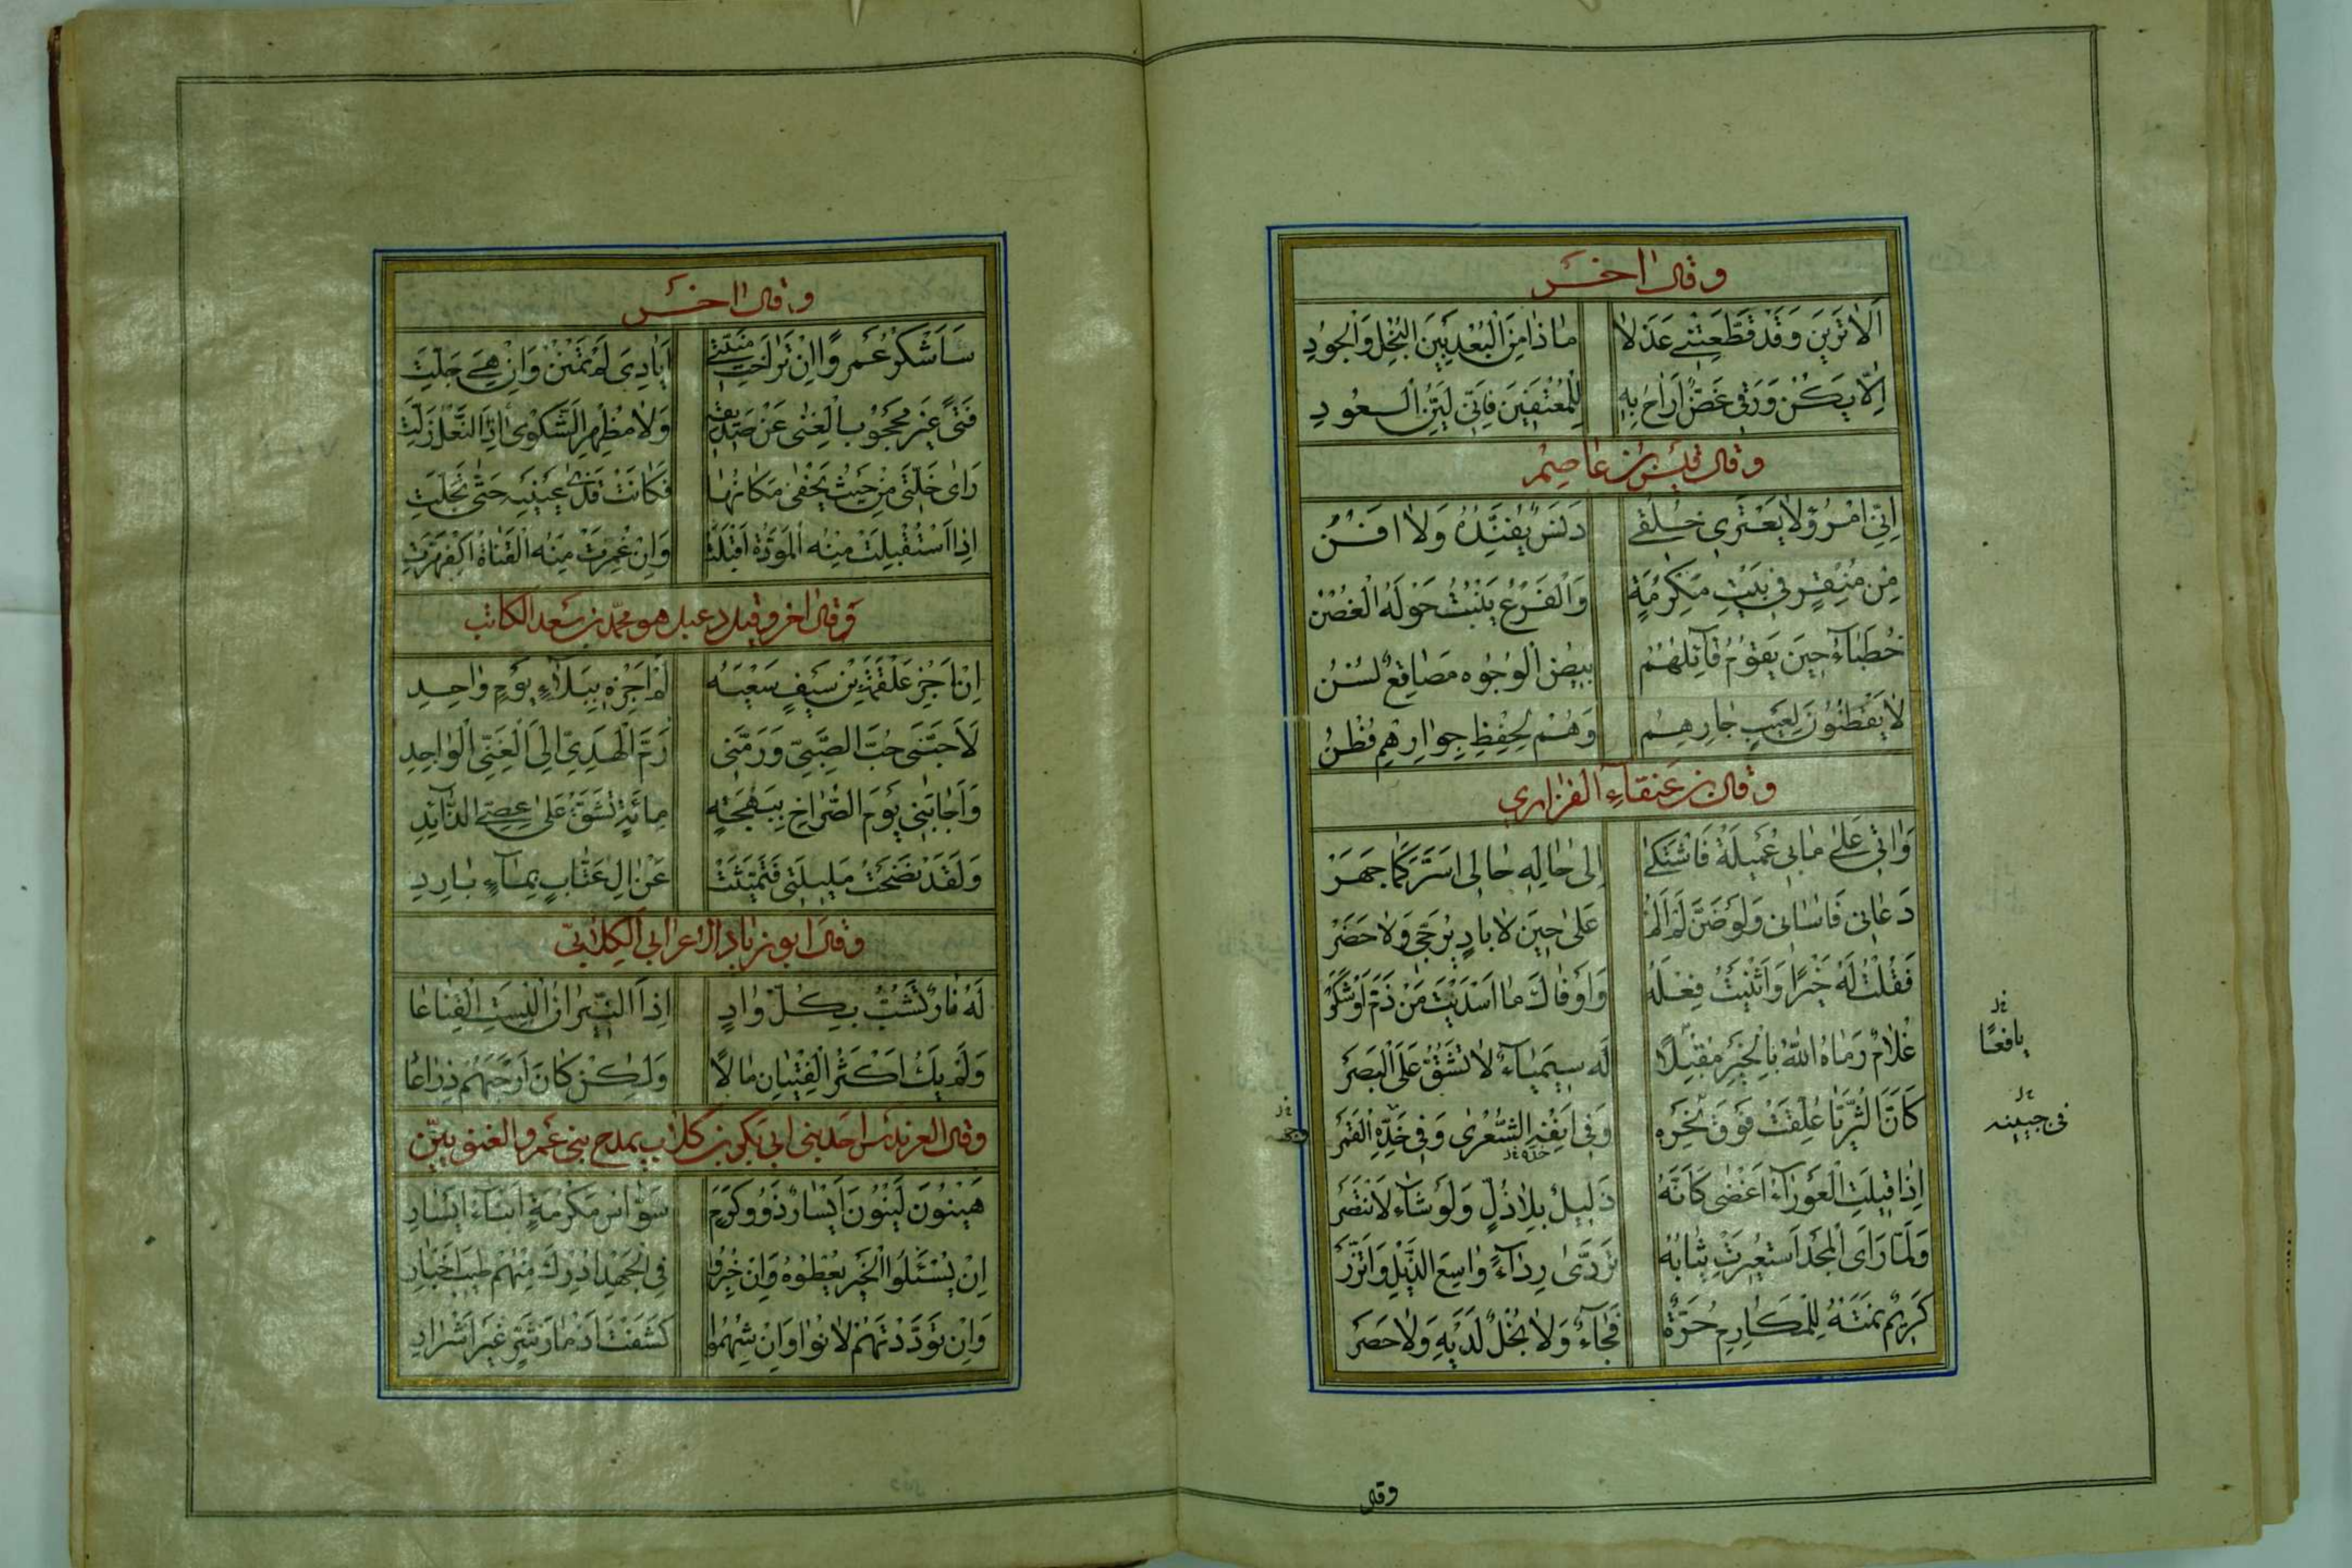 وقال اخر
اَلا تَرَيْنَ وَقَدْ قَطَّعْتِنِي عَذَلا ماذا مِنَ الْبُعْدِ بَيْنَ الْبُخْلِ وَالْجُودِ
اِلّا يَكُنْ وَرَقي غَضًّا اَراحُ بِهِ لِلْمُعْتَفينَ فَاِنّي لَيِّنُ الْعُودِ
وقال قيس بن عاصم
اِنّي امْرُؤٌ لا يَعْتَري خُلُقي دَنَسٌ يُفَنِّدُهُ وَلا افَنُ
مِنْ مِنْقَرٍ في بَيْتِ مَكْرُمَةٍ وَالْفَرْعُ يَنْبُتُ حَوْلَهُ الْغُصْنُ
خُطَباءُ حينَ يَقُومُ قائِلُهُمْ بيضُ الْوُجُوهِ مَصاقِعٌ لُسُنُ
لا يَفْطَنُونَ لِعَيْبِ جارِهِمُ وَهُمْ لِحِفْظِ جِوارِهِمِ فُطْنُ
وقال بن عنقاء الفزاري
وَاٰني عَلى ما بي عُمَيْلَةُ فَاشْتَكى اِلى مالِهِ حالي اَسَرَّ كَما جَهَرْ
دَعاني فَاٰساني وَلَوْ ضَنَّ لَمْ اَلُمْ عَلى حينَ لا بادٍ يُرَجّى وَلا حَضَرْ
فَقُلْتُ لَهُ خَيْرًا وَاَثْنَيْتُ فِعْلَهُ وَاَوْفاكَ ما اسْدَيْتَ مَنْ ذَمَّ اَوْ شَكَرْ
غُلامٌ رَماهُ اللهُ بِالْخَيْرِ مُقْبِلًا لَهُ سيمِياءٌ لا تَشُقُّ عَلَى الْبَصَرْ
يافعًا
كَاَنَّ الثُّرَيّا عُلِّقَتْ فَوْقَ نَحْرِهِ وَفي اَنْفِهِ الشِّعْرى وَفي خَدِّهِ الْقَمَرْ
في جبينه
اِذا قيلَتِ الْعَوْراءُ اَغْضى كَاَنَّهُ ذَليلٌ بِلا ذُلٍّ وَلَوْ شاءَ لَانْتَصَرْ
وَلَمّا رَاَى الْمَجْدَ اسْتُعيرَتْ ثِيابُهُ تَرَدّى رِداءً واسِعَ الذَّيْلِ وَاتَّزَرْ
كَريمٌ نَمَتْهُ لِلْمَكارِمِ حُرَّةٌ فَجاءَ وَلا بُخْلٌ لَدَيْهِ وَلا حَصَرْ
وقال
وقال اخر
سَاَشْكُرُ عَمْرًوا اِنْ تَراخَتْ مَنِيَّتي اَيادِيَ لَمْ تُمْنَنْ وَاِنْ هِيَ جَلَّتِ
فَتًى غَيْرُ مَحْجُوبِ الْغِنى عَنْ صَديقِهِ وَلا مُظْهِرِ الشَّكْوى اِذَا النَّعْلُ زَلَّتِ
رَاى خَلَّتي مِنْ حَيْثُ يَخْفى مَكانُها فَكانَتْ قَذى عَيْنَيْهِ حَتّى تَجَلَّتِ
اِذَا اسْتُقْبِلَتْ مِنْهُ الْمَوَدَّةُ اَقْبَلَتْ وَاِنْ غُمِزَتْ مِنْهُ الْقَناةُ اكْفَهَرَّتِ
وقال اخر وقيل دعبل هو محمد بن سعد الكاتب
اِنْ اَجْزِ عَلْقَمَةَ بْنَ سَيْفٍ سَعْيَهُ لَمْ اَجْزِهِ بِبَلاءِ يَوْمٍ واحِدِ
لَاَحَبَّني حُبَّ الصَّبِيِّ وَرَمَّني رَمَّ الْهَدِيِّ اِلَى الْغَنِيِّ الْواجِدِ
وَاَجابَني يَوْمَ الصُّراخِ بِهَجْمَةٍ مِائَةٍ تَشُقُّ عَلى عِصِيِّ الذّائِدِ
وَلَقَدْ نَضَحْتُ مَليلَتي فَتَمَيَّثَتْ عَنْ اٰلِ عَتّابٍ بِماءٍ بارِدِ
وقال ابو زياد الاعرابي الكلابي
لَهُ نارٌ تُشَبُّ بِكُلِّ وادٍ اِذَا النّيرانُ اُلْبِسَتِ الْقِناعا
وَلَمْ يَكُ اَكْثَرَ الْفِتْيانِ مالًا وَلكِنْ كانَ اَرْحَبَهُمْ ذِراعًا
وقال العرندس احد بني ابي بكر بن كلاب يمدح بني عمرو الغنويين
هَيْنُونَ لَيْنُونَ اَيْسارٌ ذَوُو كَرَمٍ سُوّاسُ مَكْرُمَةٍ اَبْناءُ اَيْسارِ
اِنْ يُسْئَلُوا الْخَيْرَ يُعْطُوهُ وَاِنْ خُبِرُوا فِي الْجَهْدِ اُدْرِكَ مِنْهُمْ طيبُ اَخْبارِ
وَاِنْ تَوَدَّدْتَهُمْ لانُوا وَاِنْ شُهِمُوا كَشَفْتَ اَذْمارَ شَرٍّ غَيْرَ اَشْرارِ